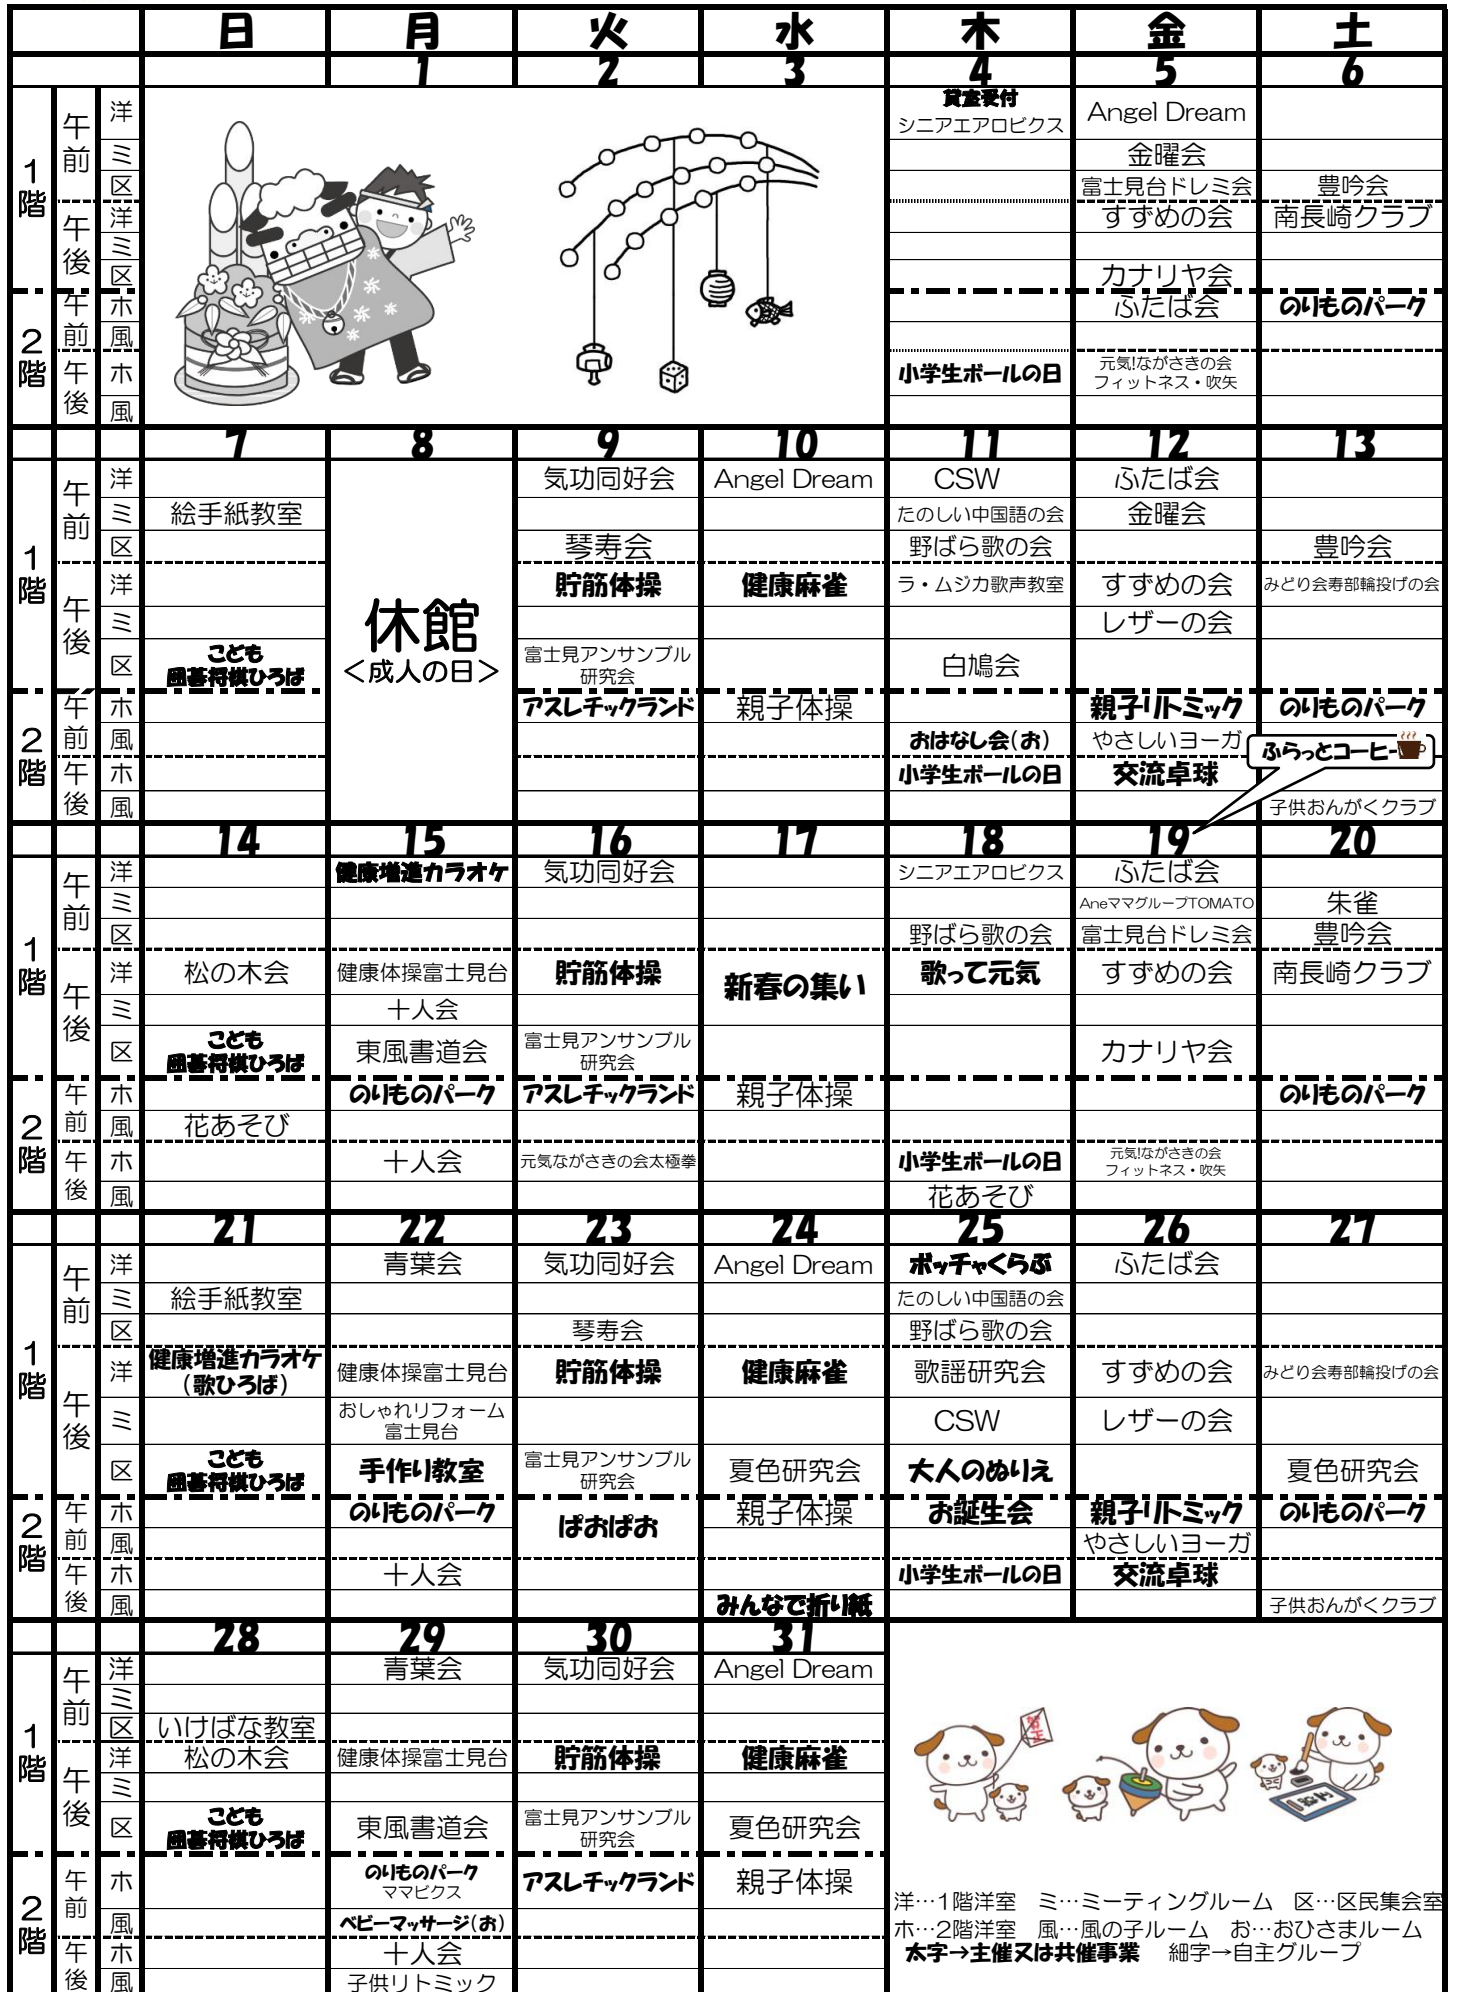 日 月 火 水 木 金 土
1 2 3 4 5 6
1階
午前
洋 貸室受付 シニアエアロビクス Angel Dream
ミ 金曜会
区 富士見台ドレミ会 豊吟会
午後
洋 すずめの会 南長崎クラブ
ミ
区 カナリヤ会
2階
午前
ホ ふたば会 のりものパーク
風
午後
ホ 小学生ボールの日 元気!ながさきの会 フィットネス・吹矢
風
7 8 9 10 11 12 13
休館
<成人の日>
1階
午前
洋 気功同好会 Angel Dream CSW ふたば会
ミ 絵手紙教室 たのしい中国語の会 金曜会
区 琴寿会 野ばら歌の会 豊吟会
午後
洋 貯筋体操 健康麻雀 ラ・ムジカ歌声教室 すずめの会 みどり会寿部輪投げの会
ミ レザーの会
区 こども 囲碁将棋ひろば 富士見アンサンブル 研究会 白鳩会
2階
午前
ホ アスレチックランド 親子体操 親子リトミック のりものパーク
風 おはなし会(お) やさしいヨーガ
ふらっとコーヒー
午後
ホ 小学生ボールの日 交流卓球
風 子供おんがくクラブ
14 15 16 17 18 19 20
1階
午前
洋 健康増進カラオケ 気功同好会 シニアエアロビクス ふたば会
ミ AneママグループTOMATO 朱雀
区 野ばら歌の会 富士見台ドレミ会 豊吟会
午後
洋 松の木会 健康体操富士見台 貯筋体操 新春の集い 歌って元気 すずめの会 南長崎クラブ
ミ 十人会
区 こども 囲碁将棋ひろば 東風書道会 富士見アンサンブル 研究会 カナリヤ会
2階
午前
ホ のりものパーク アスレチックランド 親子体操 のりものパーク
風 花あそび
午後
ホ 十人会 元気ながさきの会太極拳 小学生ボールの日 元気!ながさきの会 フィットネス・吹矢
風 花あそび
21 22 23 24 25 26 27
1階
午前
洋 青葉会 気功同好会 Angel Dream ボッチャくらぶ ふたば会
ミ 絵手紙教室 たのしい中国語の会
区 琴寿会 野ばら歌の会
午後
洋 健康増進カラオケ (歌ひろば) 健康体操富士見台 貯筋体操 健康麻雀 歌謡研究会 すずめの会 みどり会寿部輪投げの会
ミ おしゃれリフォーム 富士見台 CSW レザーの会
区 こども 囲碁将棋ひろば 手作り教室 富士見アンサンブル 研究会 夏色研究会 大人のぬりえ 夏色研究会
2階
午前
ホ のりものパーク ぱおぱお 親子体操 お誕生会 親子リトミック のりものパーク
風 やさしいヨーガ
午後
ホ 十人会 小学生ボールの日 交流卓球
風 みんなで折り紙 子供おんがくクラブ
28 29 30 31
1階
午前
洋 青葉会 気功同好会 Angel Dream
ミ
区 いけばな教室
午後
洋 松の木会 健康体操富士見台 貯筋体操 健康麻雀
ミ
区 こども 囲碁将棋ひろば 東風書道会 富士見アンサンブル 研究会 夏色研究会
2階
午前
ホ のりものパーク ママビクス アスレチックランド 親子体操
風 ベビーマッサージ(お)
午後
ホ 十人会
風 子供リトミック
洋…1階洋室 ミ…ミーティングルーム 区…区民集会室
ホ…2階洋室 風…風の子ルーム お…おひさまルーム
太字→主催又は共催事業 細字→自主グループ